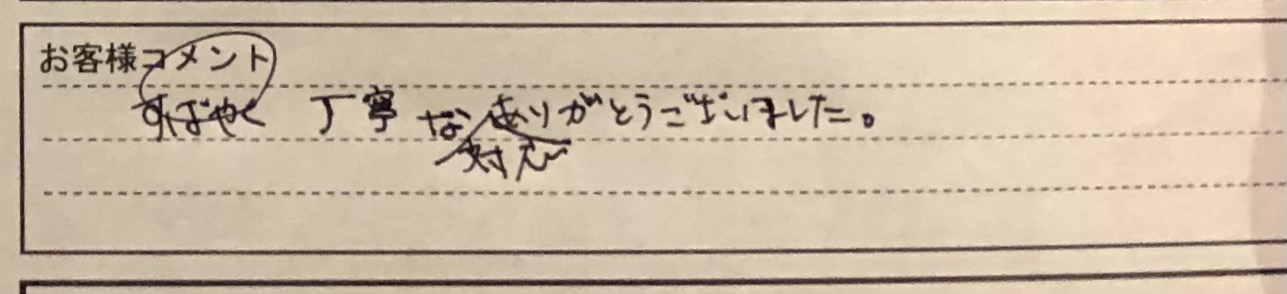 お客様コメント
すばやく 丁寧な対応ありがとうございました。